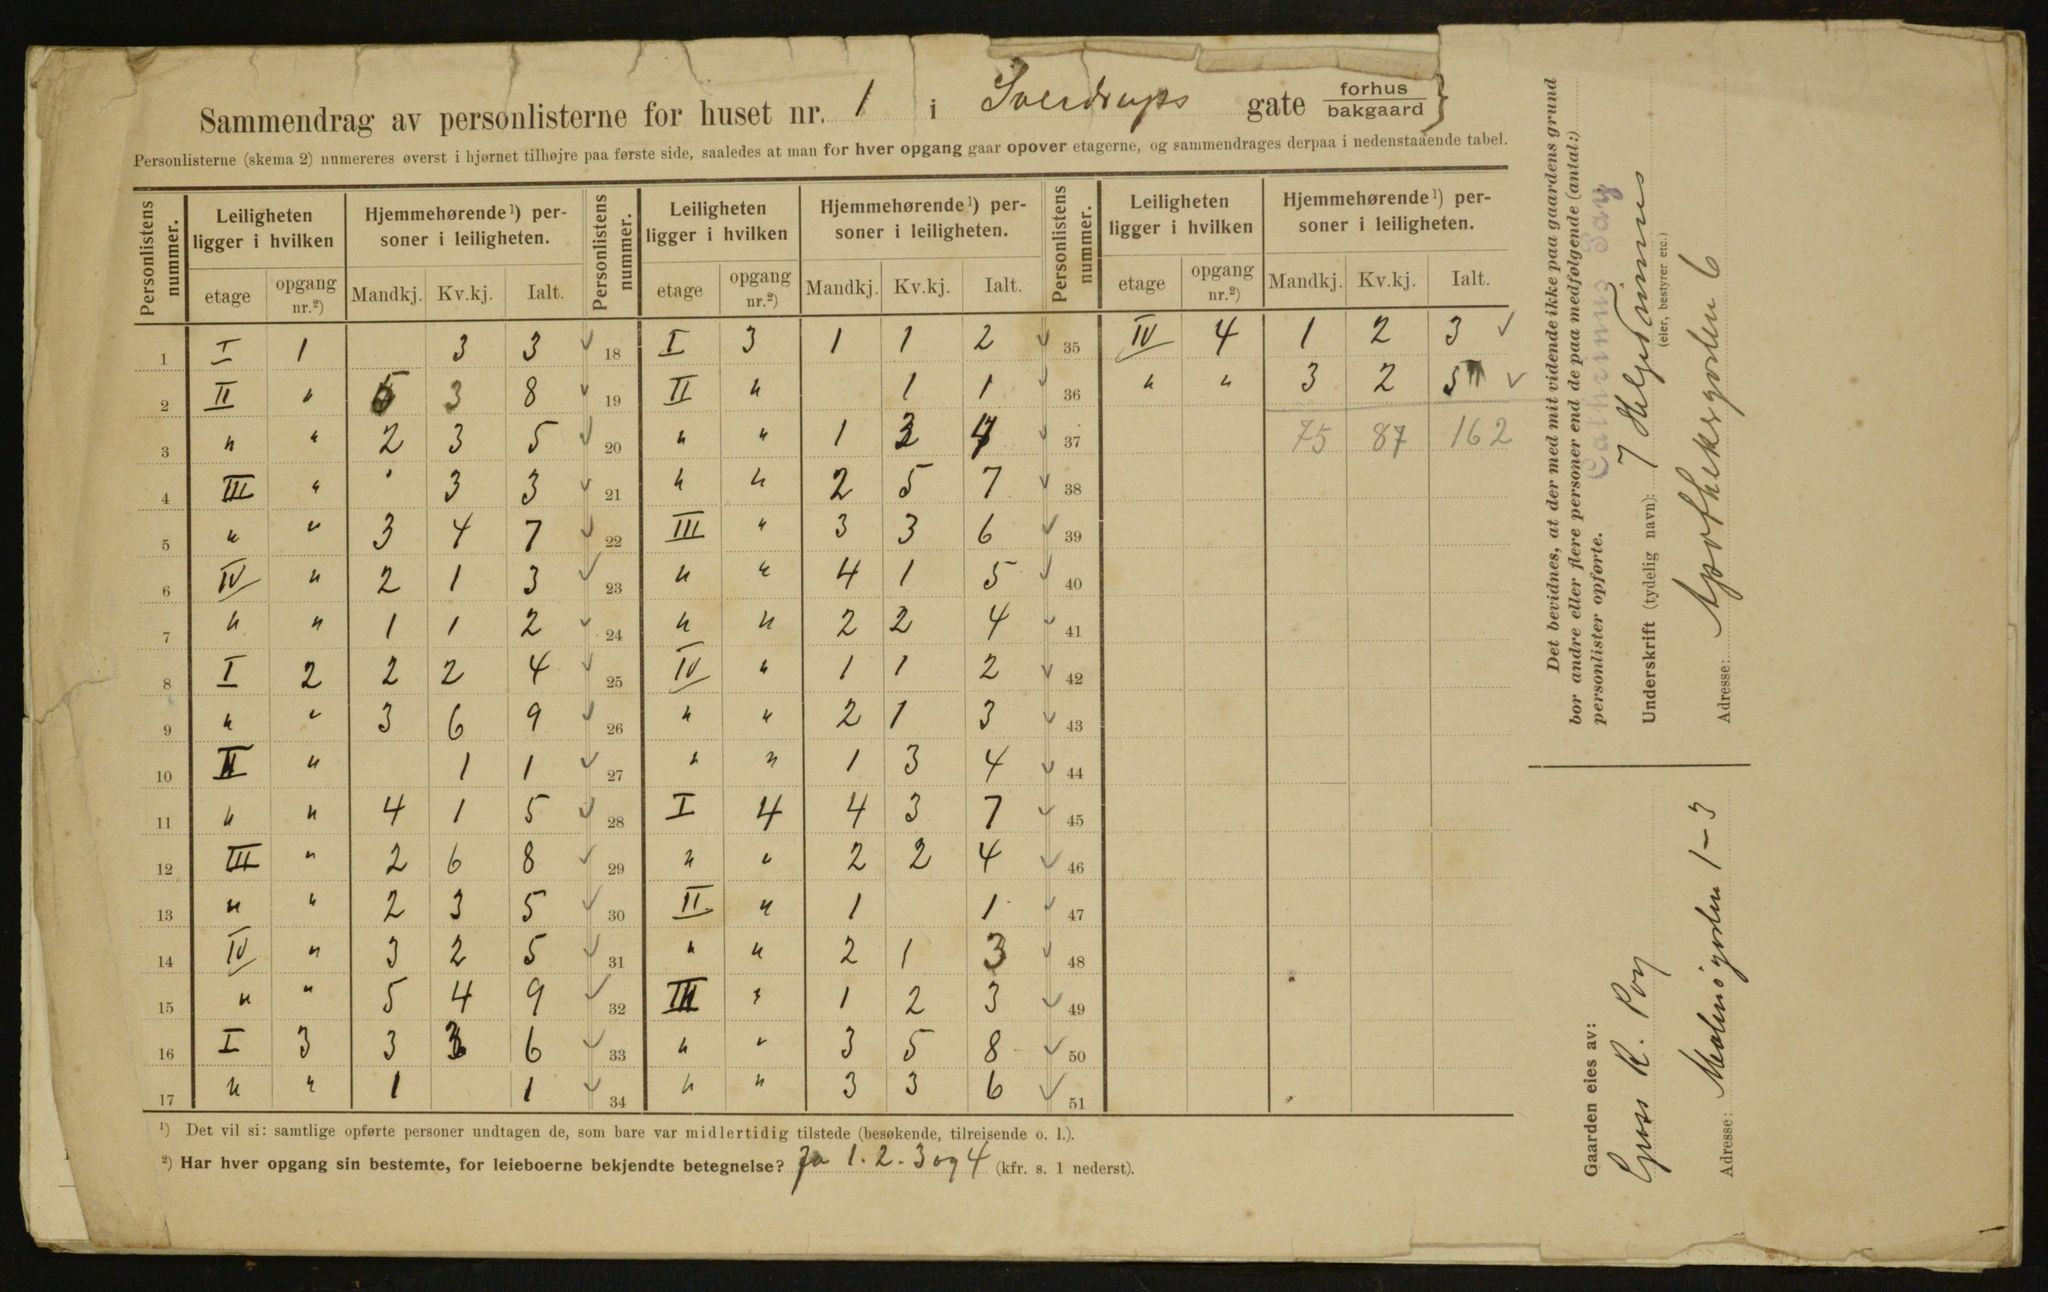 Sammendrag av personlisterne for huset nr. 1 i Sverdrups gate forhus bakgaard }
Personlisterne (skema 2) numereres øverst i hjørnet tilhøjre paa første side, saaledes at man for hver opgang gaar opover etagerne, og sammendrages derpaa i nedenstaaende tabel.
Personlistens nummer. Leiligheten ligger i hvilken Hjemmehørende ¹) personer i leiligheten. Personlistens nummer. Leiligheten ligger i hvilken Hjemmehørende ¹) personer i leiligheten. Personlistens nummer. Leiligheten ligger i hvilken Hjemmehørende ¹) personer i leiligheten.
etage opgang nr.²) Mandkj. Kv.kj. Ialt. etage opgang nr.²) Mandkj. Kv.kj. Ialt. etage opgang nr.²) Mandkj. Kv.kj. Ialt.
1 I 1 3 3 ✓ 18 I 3 1 1 2 ✓ 35 IV 4 1 2 3 ✓
2 II " 5 3 8 ✓ 19 II " 1 1 ✓ 36 " " 3 2 5 ✓
3 " " 2 3 5 ✓ 20 " " 1 3 4 ✓ 37 75 87 162
4 III " 3 3 ✓ 21 " " 2 5 7 ✓ 38
5 " " 3 4 7 ✓ 22 III " 3 3 6 ✓ 39
6 IV " 2 1 3 ✓ 23 " " 4 1 5 ✓ 40
7 " " 1 1 2 ✓ 24 " " 2 2 4 ✓ 41
8 I 2 2 2 4 ✓ 25 IV " 1 1 2 ✓ 42
9 " " 3 6 9 ✓ 26 " " 2 1 3 ✓ 43
10 II " 1 1 ✓ 27 " " 1 3 4 ✓ 44
11 " " 4 1 5 ✓ 28 I 4 4 3 7 ✓ 45
12 III " 2 6 8 ✓ 29 " " 2 2 4 ✓ 46
13 " " 2 3 5 ✓ 30 II " 1 1 ✓ 47
14 IV " 3 2 5 ✓ 31 " " 2 1 3 ✓ 48
15 " " 5 4 9 ✓ 32 III " 1 2 3 ✓ 49
16 I 3 3 3 6 ✓ 33 " " 3 5 8 ✓ 50
17 " " 1 1 ✓ 34 " " 3 3 6 ✓ 51
¹) Det vil si: samtlige opførte personer undtagen de, som bare var midlertidig tilstede (besøkende, tilreisende o. l.).
²) Har hver opgang sin bestemte, for leieboerne bekjendte betegnelse? Ja 1. 2. 3 og 4 (kfr. s. 1 nederst).
Det bevidnes, at der med mit vidende ikke paa gaardens grund
bor andre eller flere personer end de paa medfølgende (antal:)
personlister opførte.
Underskrift (tydelig navn):
(eier, bestyrer etc.)
Adresse: Apothekergaden 6
Gaarden eies av:
R.
Adresse: Malmøgaden 1-3